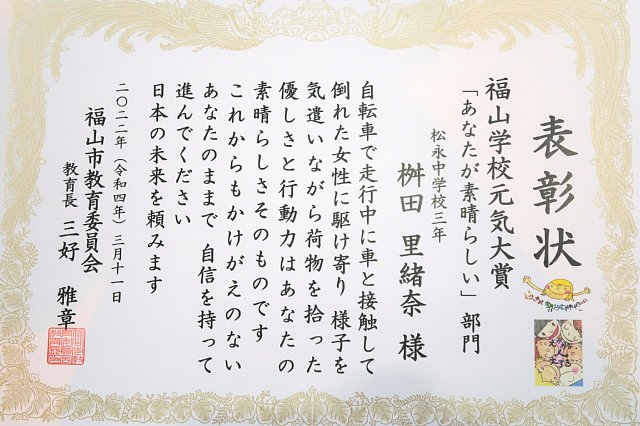 表彰状
福山学校元気大賞
「あなたが素晴らしい」部門
松永中学校三年
桝田 里緒奈 様
自転車で走行中に車と接触して
倒れた女性に駆け寄り 様子を
気遣いながら荷物を拾った
優しさと行動力はあなたの
素晴らしさそのものです
これからもかけがえのない
あなたのままで 自信を持って
進んでください
日本の未来を頼みます
二〇二二年（令和四年）三月十一日
福山市教育委員会
教育長 三好 雅章